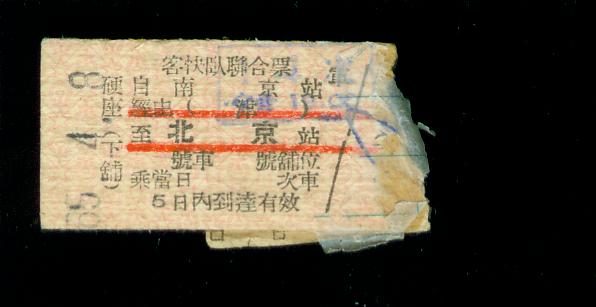 客快臥聯合票
硬座 自南京站
經由(
至北京站
(下舖)
號車 號舖位
乘當日 次車
5日內到達有效
65 4 8